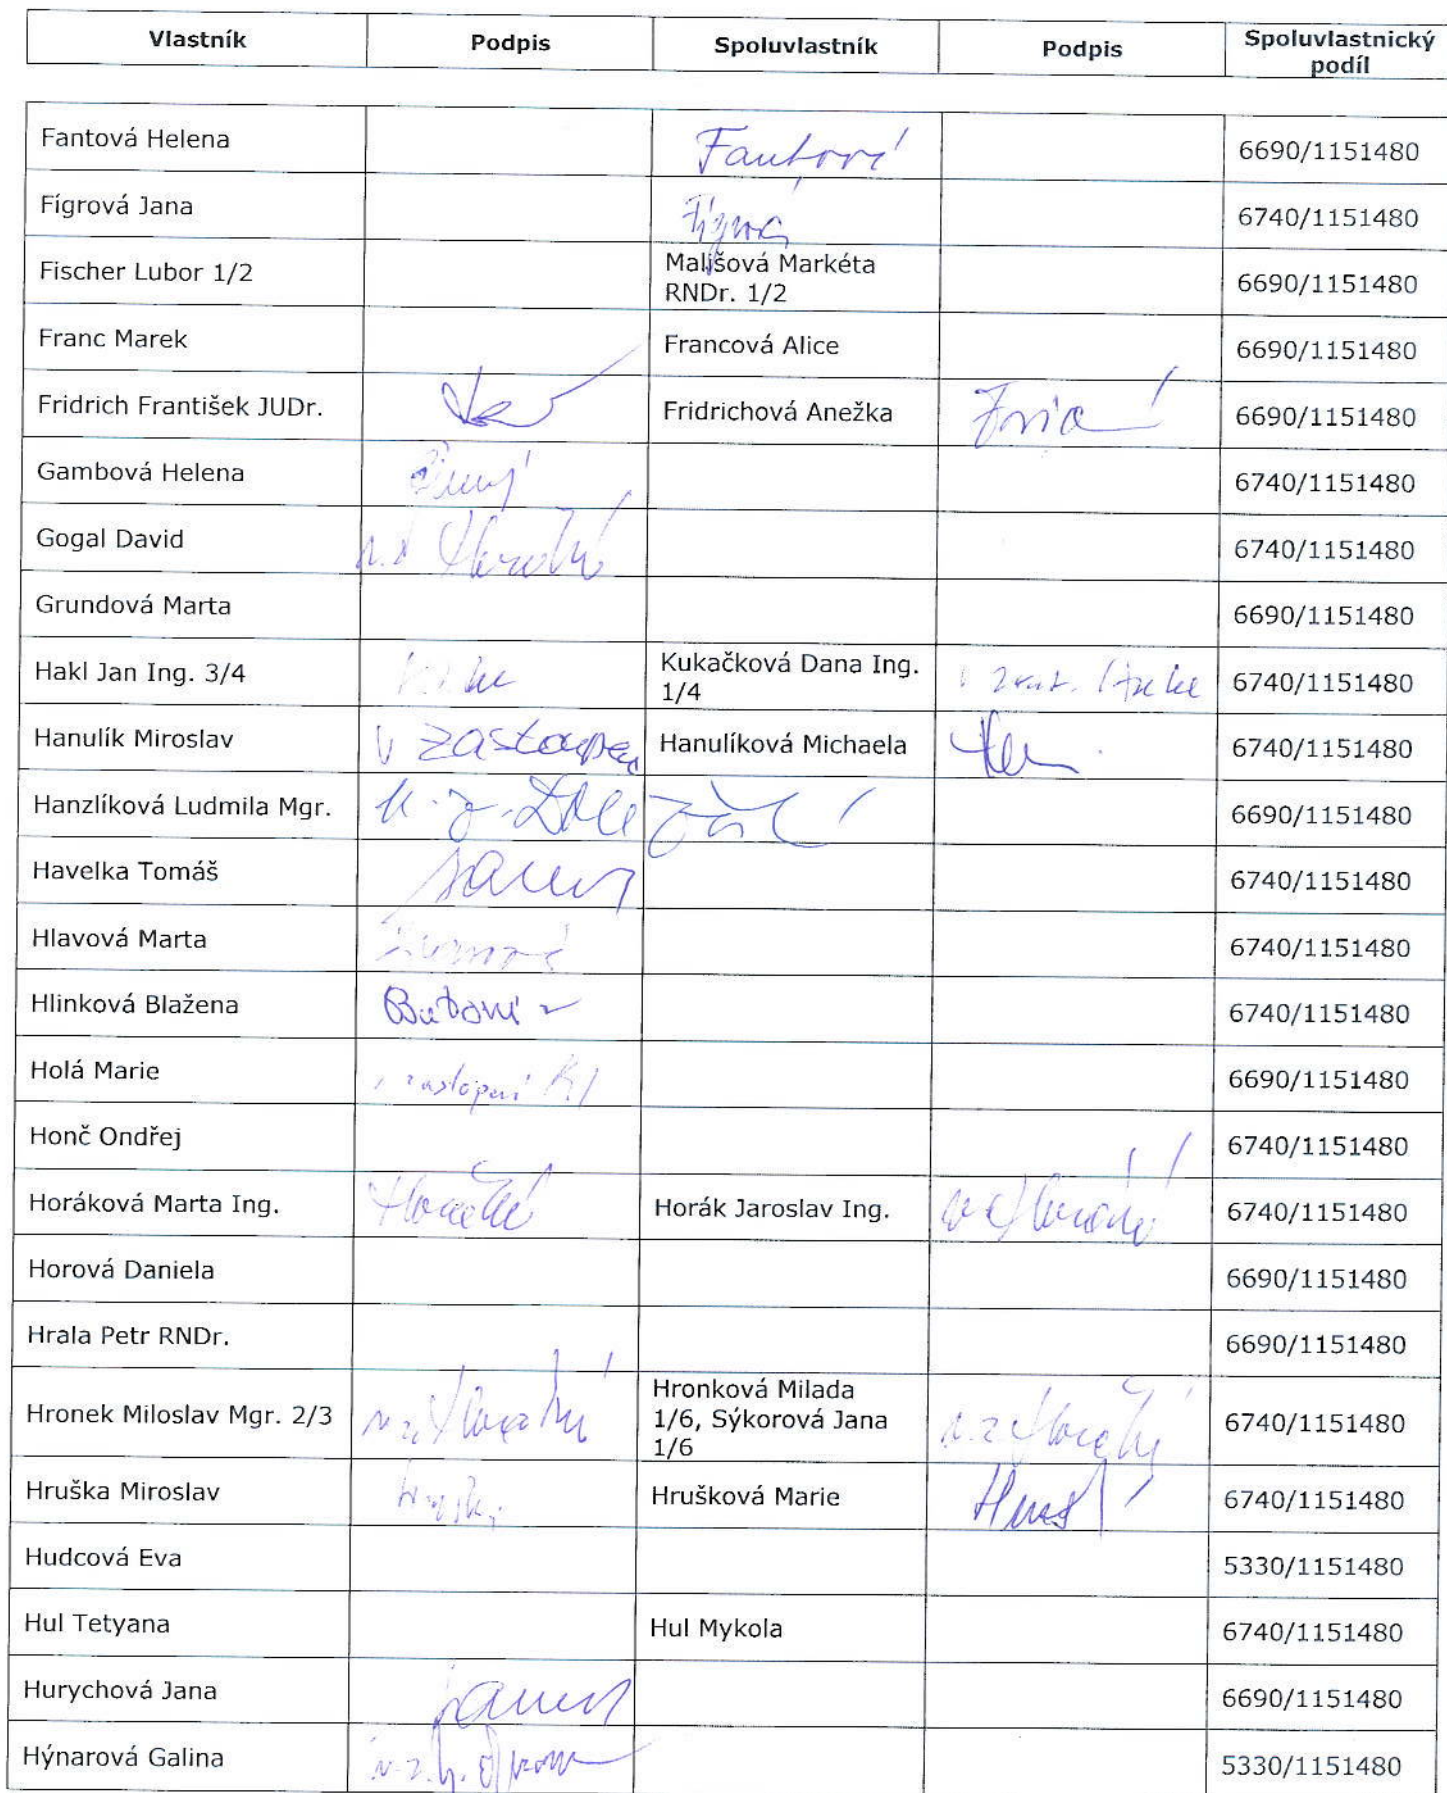 Vlastník Podpis Spoluvlastník Podpis Spoluvlastnický
podíl
Fantová Helena Fantová 6690/1151480
Fígrová Jana Fígrová 6740/1151480
Fischer Lubor 1/2 Mališová Markéta
RNDr. 1/2 6690/1151480
Franc Marek Francová Alice 6690/1151480
Fridrich František JUDr. Fridrichová Anežka 6690/1151480
Gambová Helena 6740/1151480
Gogal David 6740/1151480
Grundová Marta 6690/1151480
Hakl Jan Ing. 3/4 Kukačková Dana Ing.
1/4 6740/1151480
Hanulík Miroslav v zastoupení Hanulíková Michaela 6740/1151480
Hanzlíková Ludmila Mgr. 6690/1151480
Havelka Tomáš 6740/1151480
Hlavová Marta 6740/1151480
Hlinková Blažena 6740/1151480
Holá Marie 6690/1151480
Honč Ondřej 6740/1151480
Horáková Marta Ing. Horák Jaroslav Ing. 6740/1151480
Horová Daniela 6690/1151480
Hrala Petr RNDr. 6690/1151480
Hronek Miloslav Mgr. 2/3 Hronková Milada
1/6, Sýkorová Jana
1/6 6740/1151480
Hruška Miroslav Hrušková Marie 6740/1151480
Hudcová Eva 5330/1151480
Hul Tetyana Hul Mykola 6740/1151480
Hurychová Jana 6690/1151480
Hýnarová Galina 5330/1151480